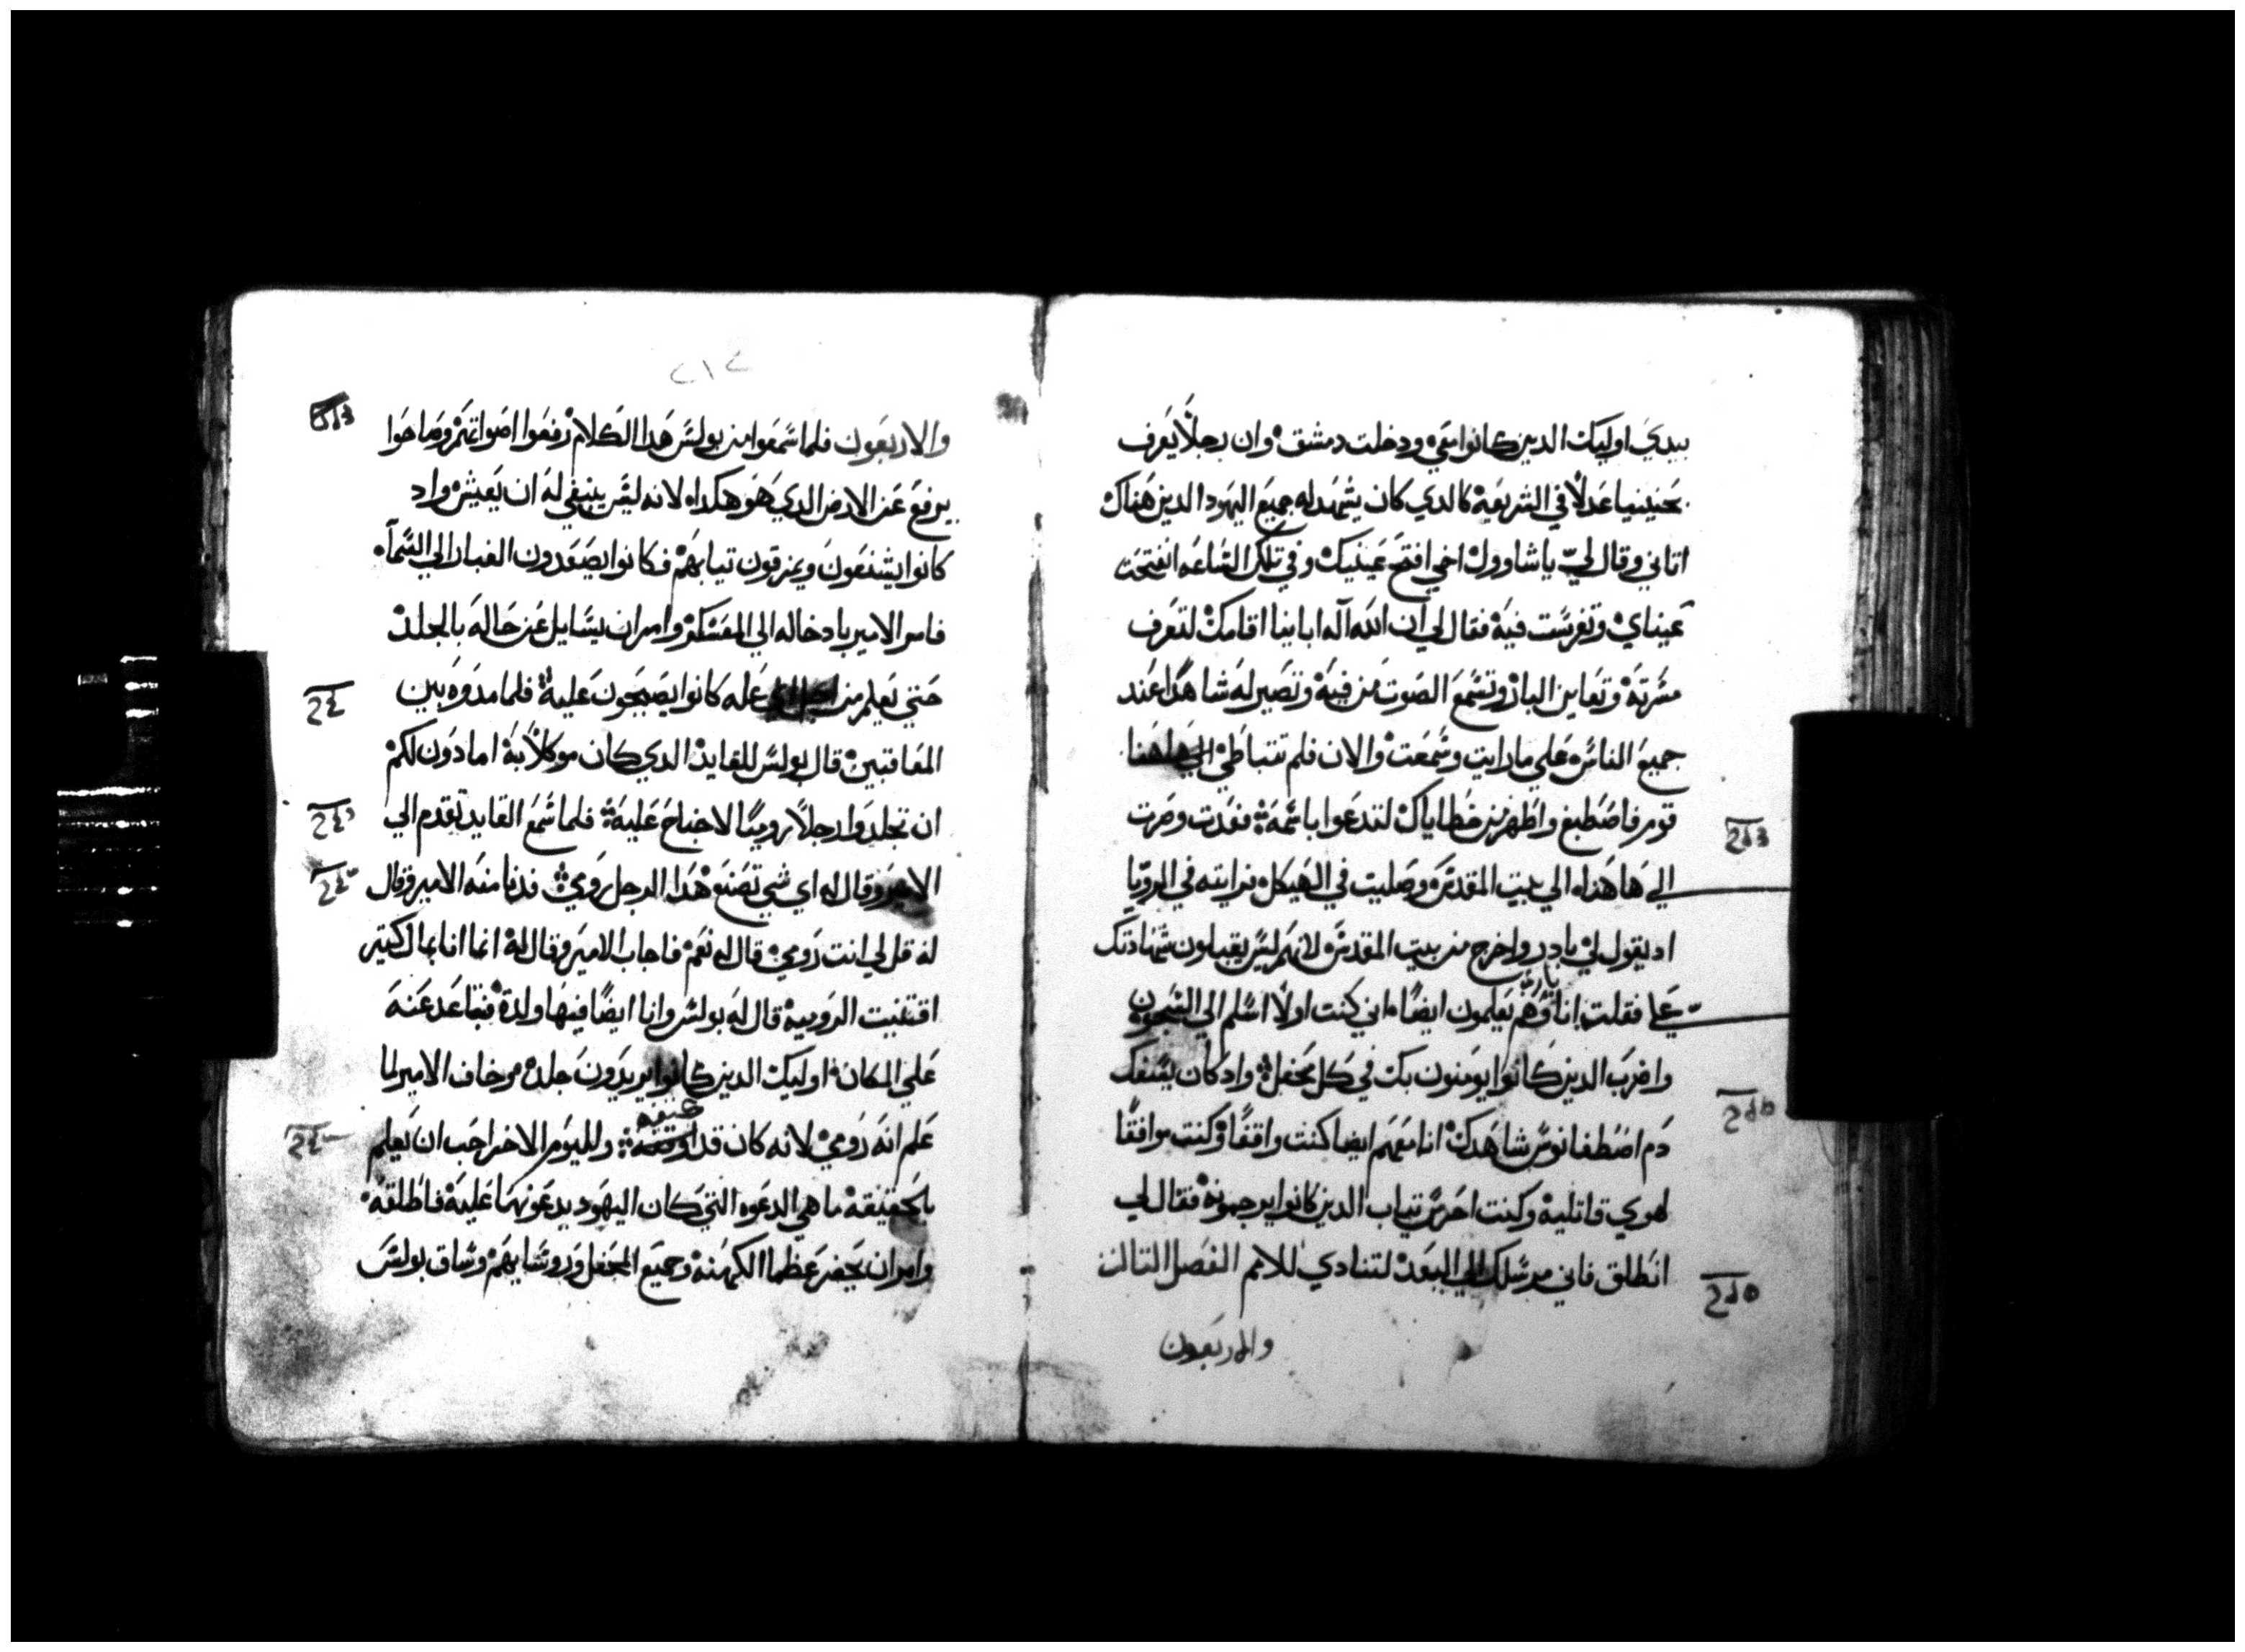 بيدي اوليك الدين كانوا معي ودخلت دمشق وان رجلاً يعرف
بحنينيا عدلاً في الشريعة كالدي كان يشهد له جميع اليهود الدين هناك
اتاني وقال لي يا شاوول اخي افتح عينيك وفي تلك الساعه انفتحت
عيناي وتفرست فيه فقال لي ان الله اله ابابينا اقامك لتعرف
مسرته وتعاين البار وتسمع الصوت من فيه وتصير له شاهداً عند
جميع الناس علي ما رايت وسمعت والان فلم تتباطي الي هاهنا
قوم فاصطبغ واطهر من خطاياك لتدعوا باسمه فعدت وصرت
الي هاهنا الي بيت المقدس وصليت في الهيكل فرايته في الرويا
اد يقول لي بادر واخرج من بيت المقدس لانهم ليس يقبلون شهادتك
علي فقلت انا يارب وهم يعلمون ايضاً اني كنت اولاً اسلم الي السجون
واضرب الدين كانوا يومنون بك في كل محفل واد كان يسفك
دم اصطفانوس شاهدك انا معهم ايضا كنت واقفاً وكنت موافقاً
لهوي قاتليه وكنت احرس تياب الدين كانوا يرجمونه فقال لي
انطلق فاني مرسلك الي البعد لتنادي للامم الفصل التالت
والاربعون
٢١٤
والاربعون فلما سمعوا من بولس هدا الكلام رفعوا اصواتهم وصاحوا
يرفع عن الارض الدي هو هكدا لانه ليس ينبغي له ان يعيش واد
كانوا يشنعون ويمزقون تيابهم فكانوا يصعدون الغبار الي السماء
فامر الامير بادخاله الي المعسكر وامر ان يسايل عن حاله بالجلد
حتي يعلم من اجل اي عله كانوا يصيحون عليه فلما مدوه بين
المعاقبين قال بولس للقايد الدي كان موكلاً به امادون لكم
ان تجلدوا رجلاً رومياً لا جناح عليه فلما سمع القايد تقدم الي
الامير وقال له اي شي تصنع هدا الرجل رومي فدنا منه الامير وقال
له قل لي انت رومي قال له نعم فاجاب الامير وقال له انما انا بمال كتير
اقتنيت الروميه قال له بولس وانا ايضاً فيها ولدت فتباعد عنه
علي المكان اوليك الدين كانوا يريدون جلده وخاف الامير لما
علم انه رومي لانه كان قد اوتقه ولليوم الاخر احب ان يعلم
بالحقيقه ما هي الدعوه التي كان اليهود يدعونها عليه فاطلقه
وامر ان يحضر عظما الكهنه وجميع المحفل وروسايهم وساق بولس